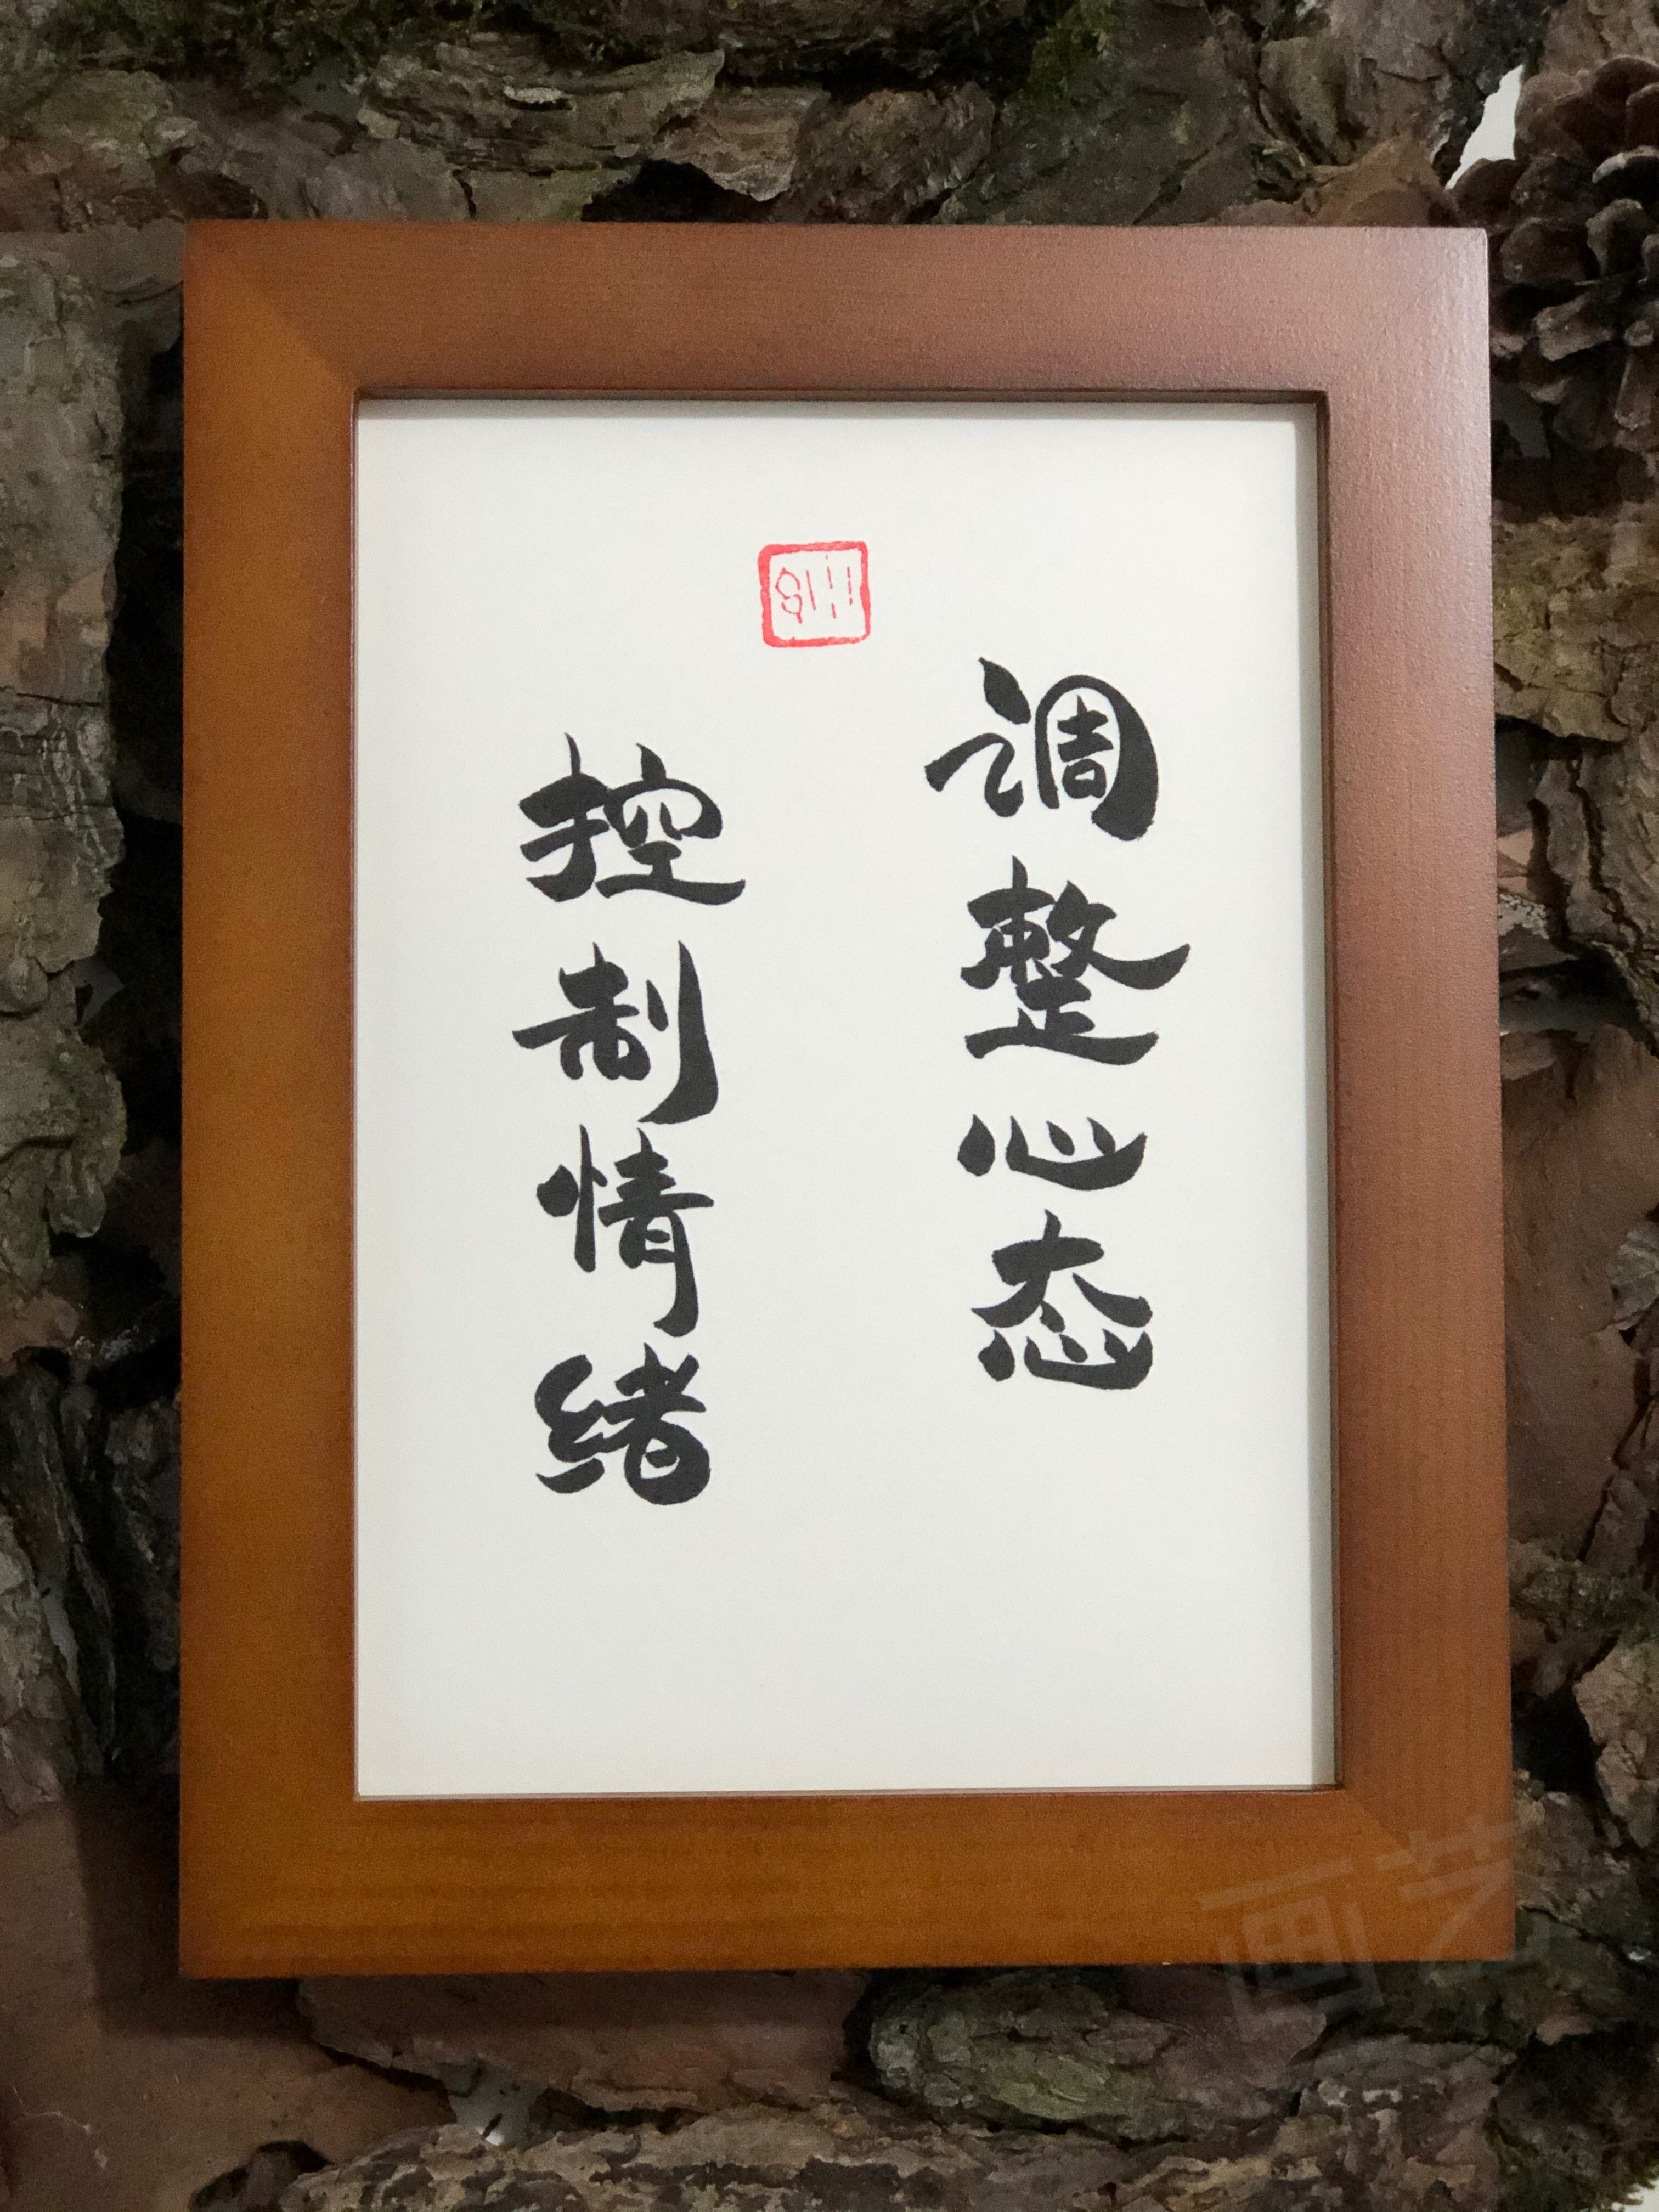 调整心态
控制情绪
画艺